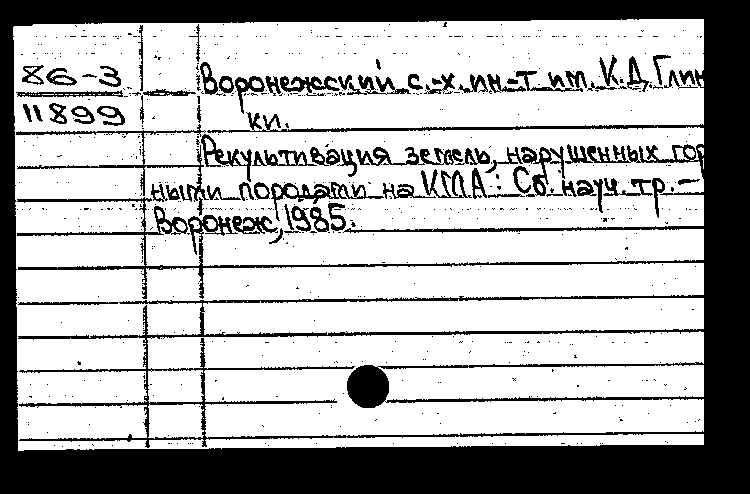 86-3
11899
Воронежский с.-х. ин-т им. К.Д. Глин
ки.
Рекультивация земель, нарушенных гор
ными породами на КМА: Сб. науч. тр. –
Воронеж, 1985.